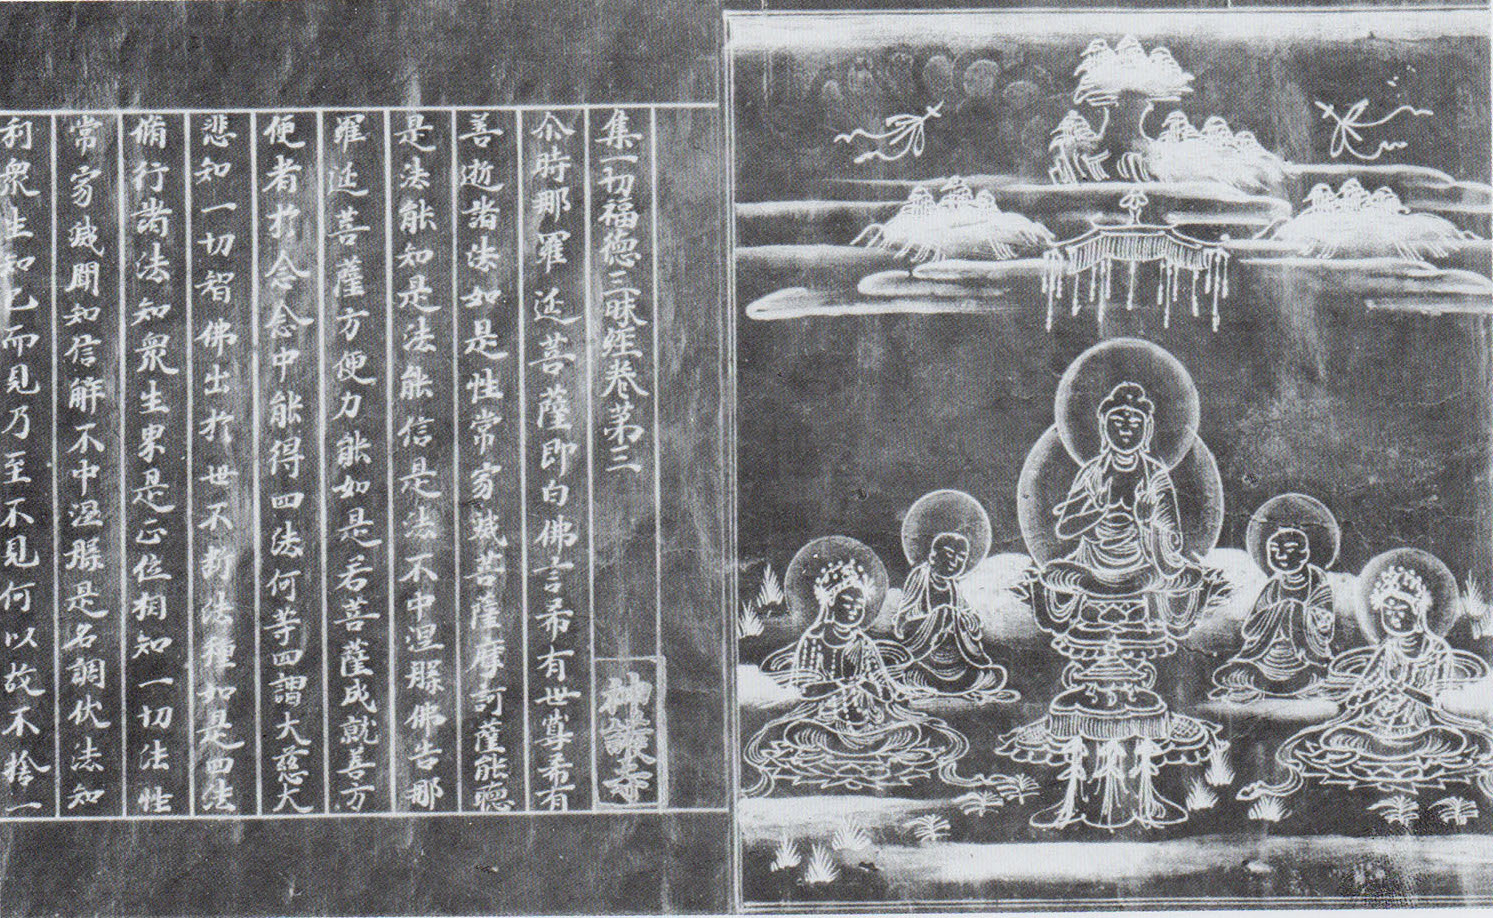 集一切福徳三昧經卷第三
神護寺
尒時那羅延菩薩即白佛言希有世尊希有
善逝諸法如是性常寂滅菩薩摩訶薩能聽
是法能知是法能信是法不中涅縣佛告那
羅延菩薩方便力能如是若菩薩成就善方
便者於念念中能得四法何等四謂大慈大
悲知一切智佛出於世不断法種如是四法
脩行諸法知衆生界是正位相知一切法性
常寂滅聞知信解不中涅縣是名調伏法知
利衆生知已而見乃至不見何以故不捨一